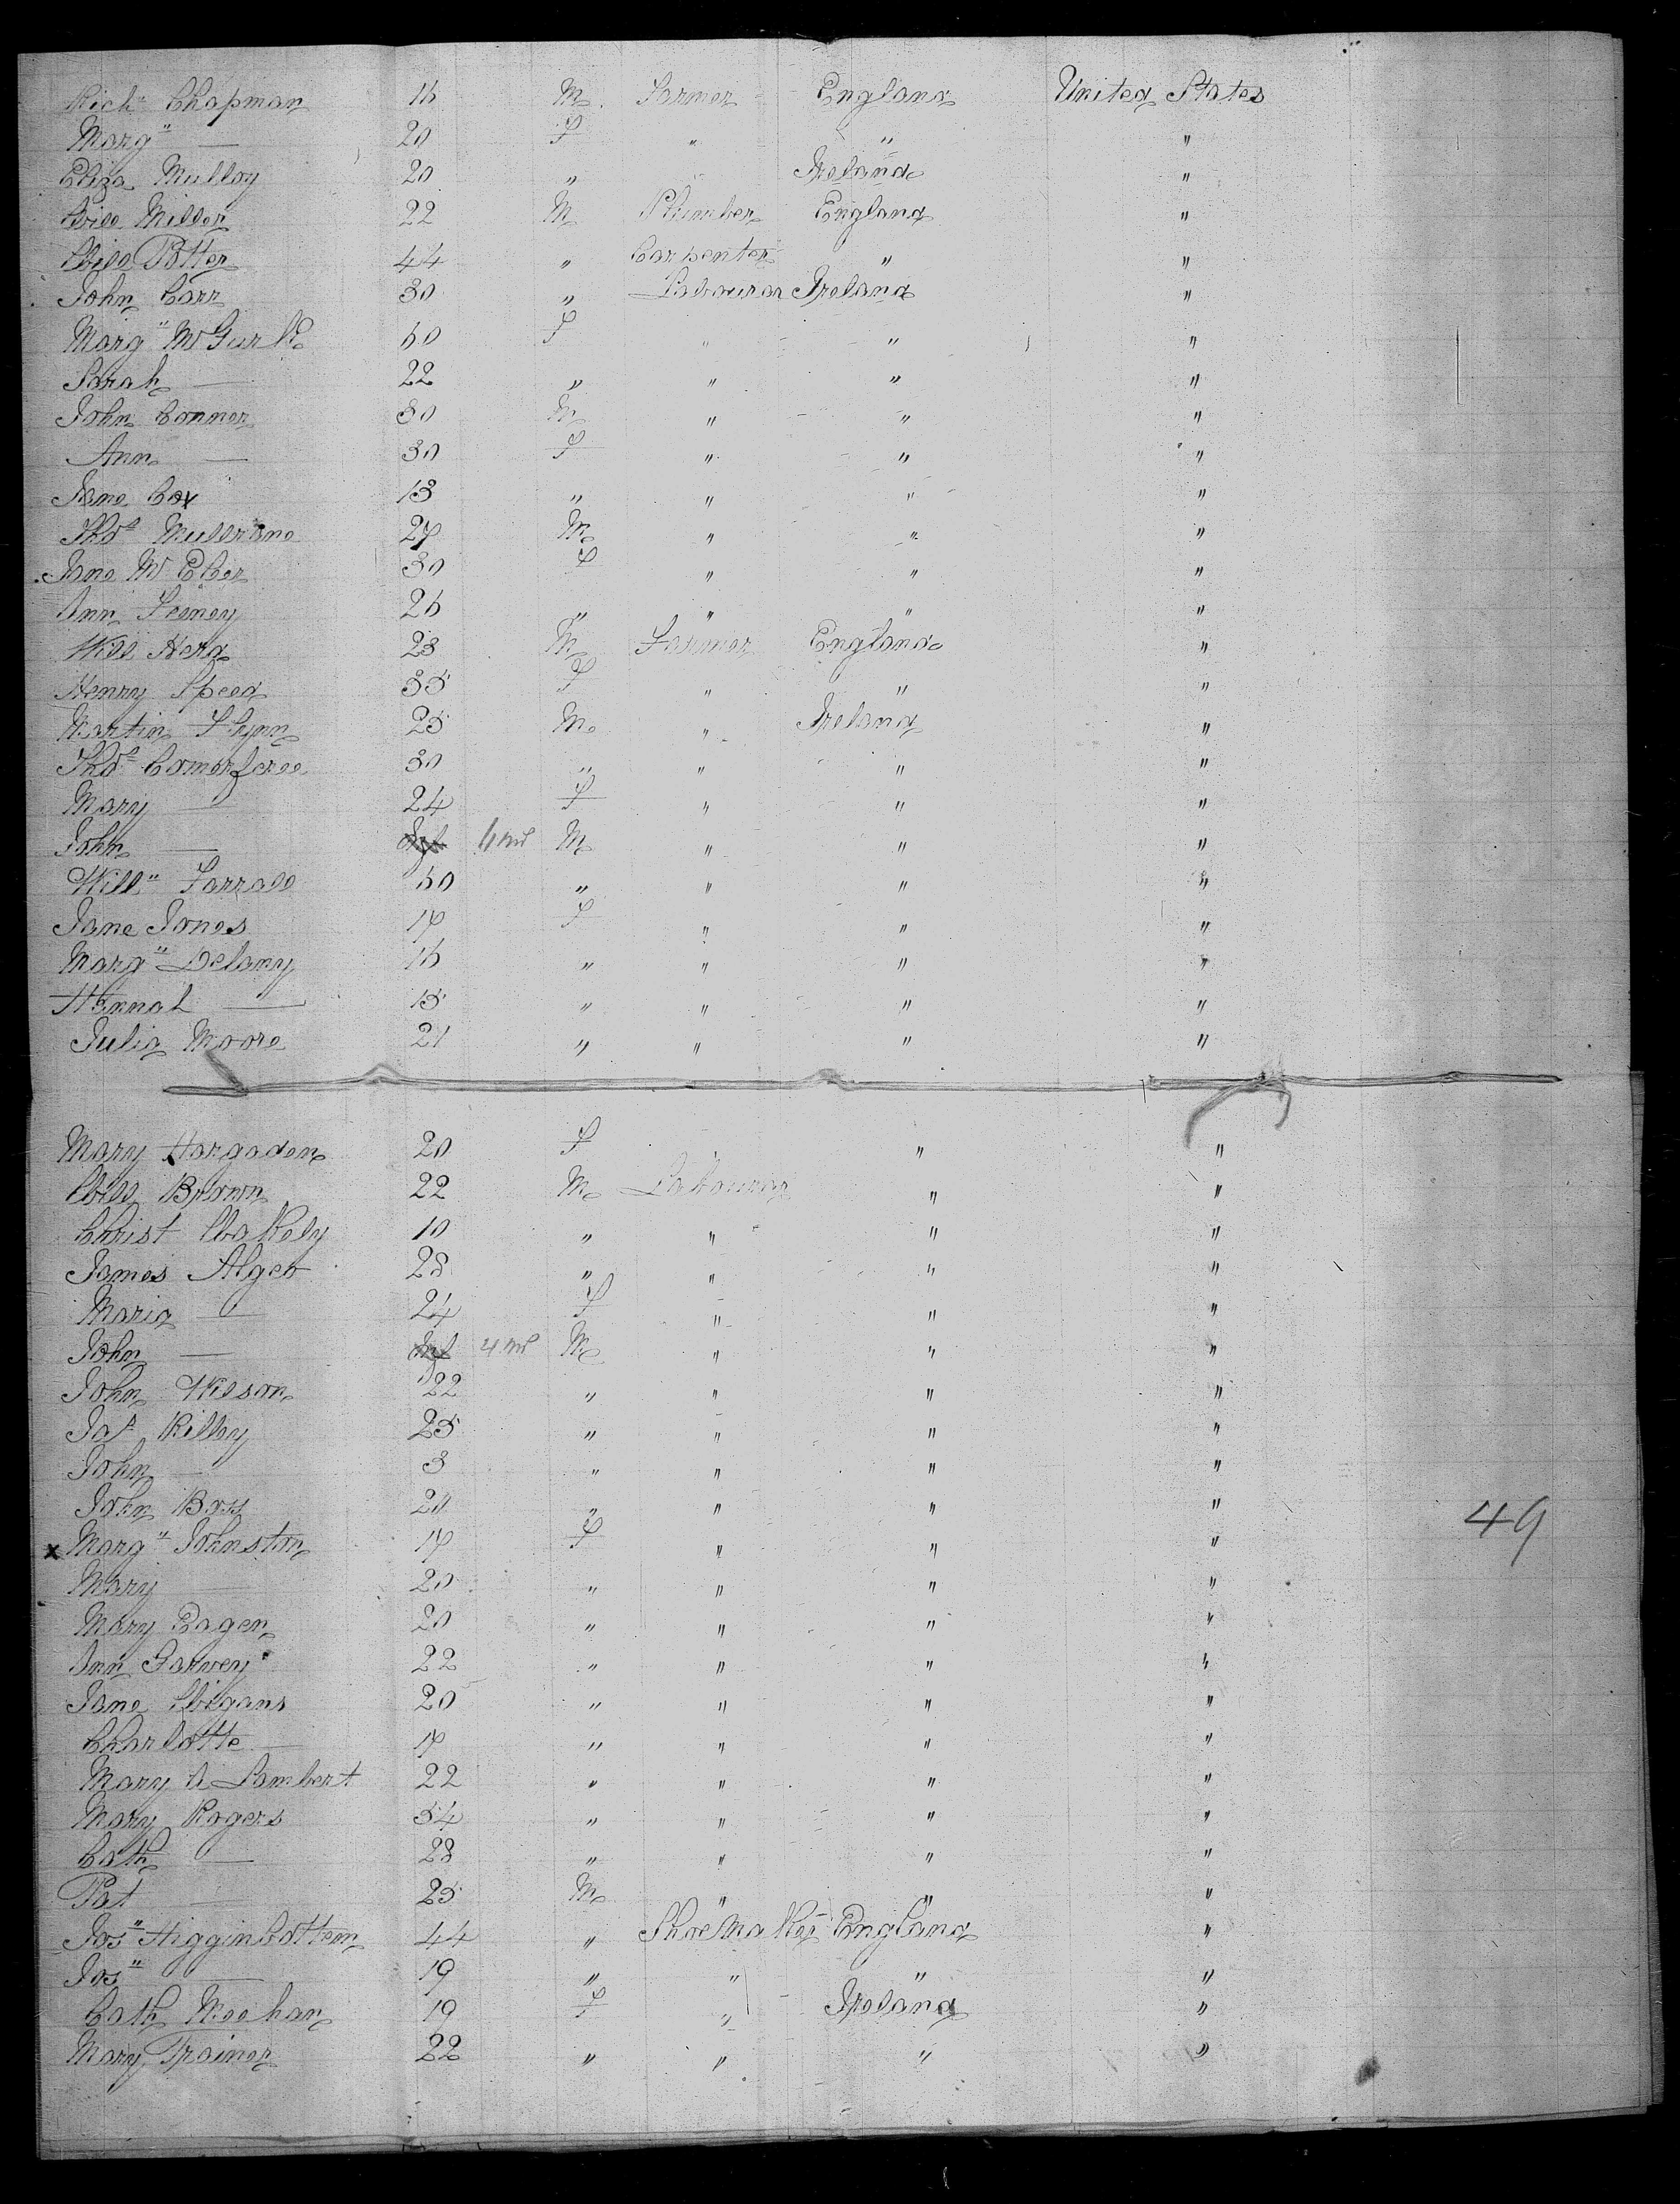 Rich" Chapman 16 M Farmer England United States
Marg" — 20 F " " "
Eliza Mulloy 20 " Ireland "
Will Miller 22 M Plumber England "
Will Potter 44 " Carpenter " "
John Carr 30 " Labourer Ireland "
Marg" McGurk 60 F " " "
Sarah — 22 " " " "
John Connor 30 M " " "
Ann — 30 F " " "
Jane Cox 13 " " " "
Thos 27 M " " "
Jane 30 F " " "
Ann Feeney 26 " " " "
Will Herd 23 M Farmer England "
Henry Speed 35 F " " "
Martin Flynn 25 M " Ireland "
Thos 30 " " " "
Mary — 24 F " " "
John — Inf M " " "
Will" Farrall 60 " " " "
Jane Jones 17 F " " "
Marg" Delany 16 " " " "
Hannah — 15 " " " "
Julia Moore 21 " " " "
Mary Hargaden 20 F " "
Will Brown 22 M Labourer " "
Christ Wakely 10 " " " "
James Algeo 28 " " " "
Maria — 24 F " " "
John — Inf 4 ms M " " "
John Wilson 22 " " " "
Jas Killey 25 " " " "
John — 3 " " " "
John Boss 20 " " " "
x Marg" Johnston 17 F " " "
Mary — 20 " " " "
Mary Eagen 20 " " " "
Ann Garvey 22 " " " "
Jane Wigans 20 " " " "
Charlotte — 17 " " " "
Mary A Lambert 22 " " " "
Mary Rogers 54 " " " "
Cath — 28 " " " "
Pat — 25 M " " "
Jos" Higginbottom 44 " Shoemaker England "
Jos" — 19 " " " "
Cath Meehan 19 F " Ireland "
Mary Trainer 22 " " " "
49